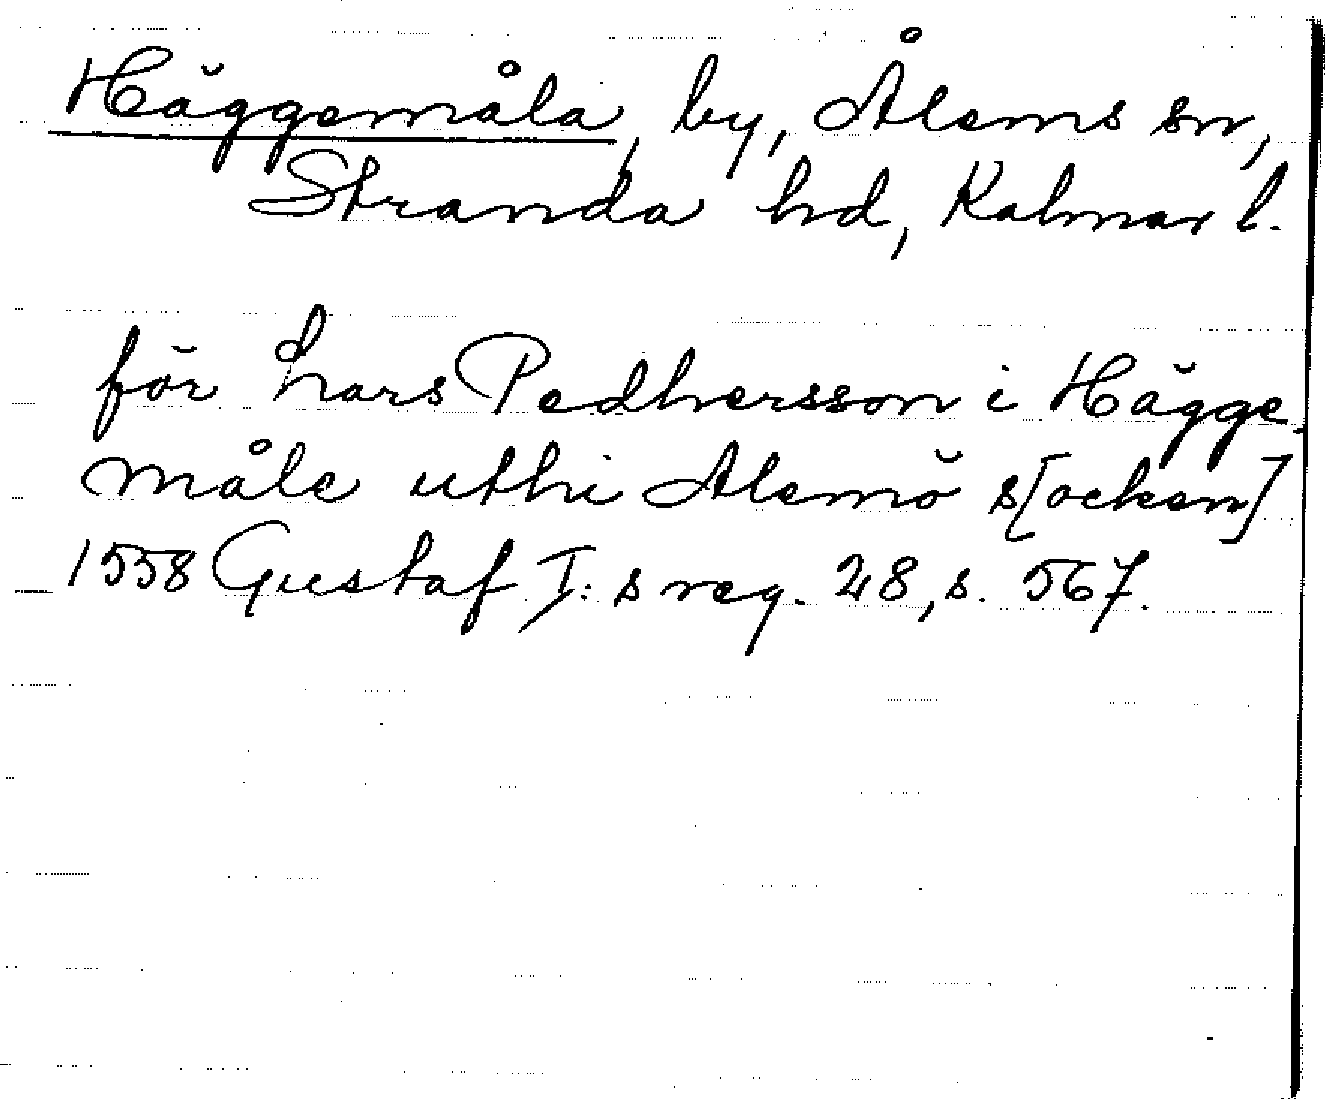 Häggemåla, by, Ålems sn,
Stranda hd, Kalmar l.
för Lars Pedhersson i Hägge-
måle uthi Alemö s[ocken]
1558 Gustaf I:s reg. 28, s. 567.